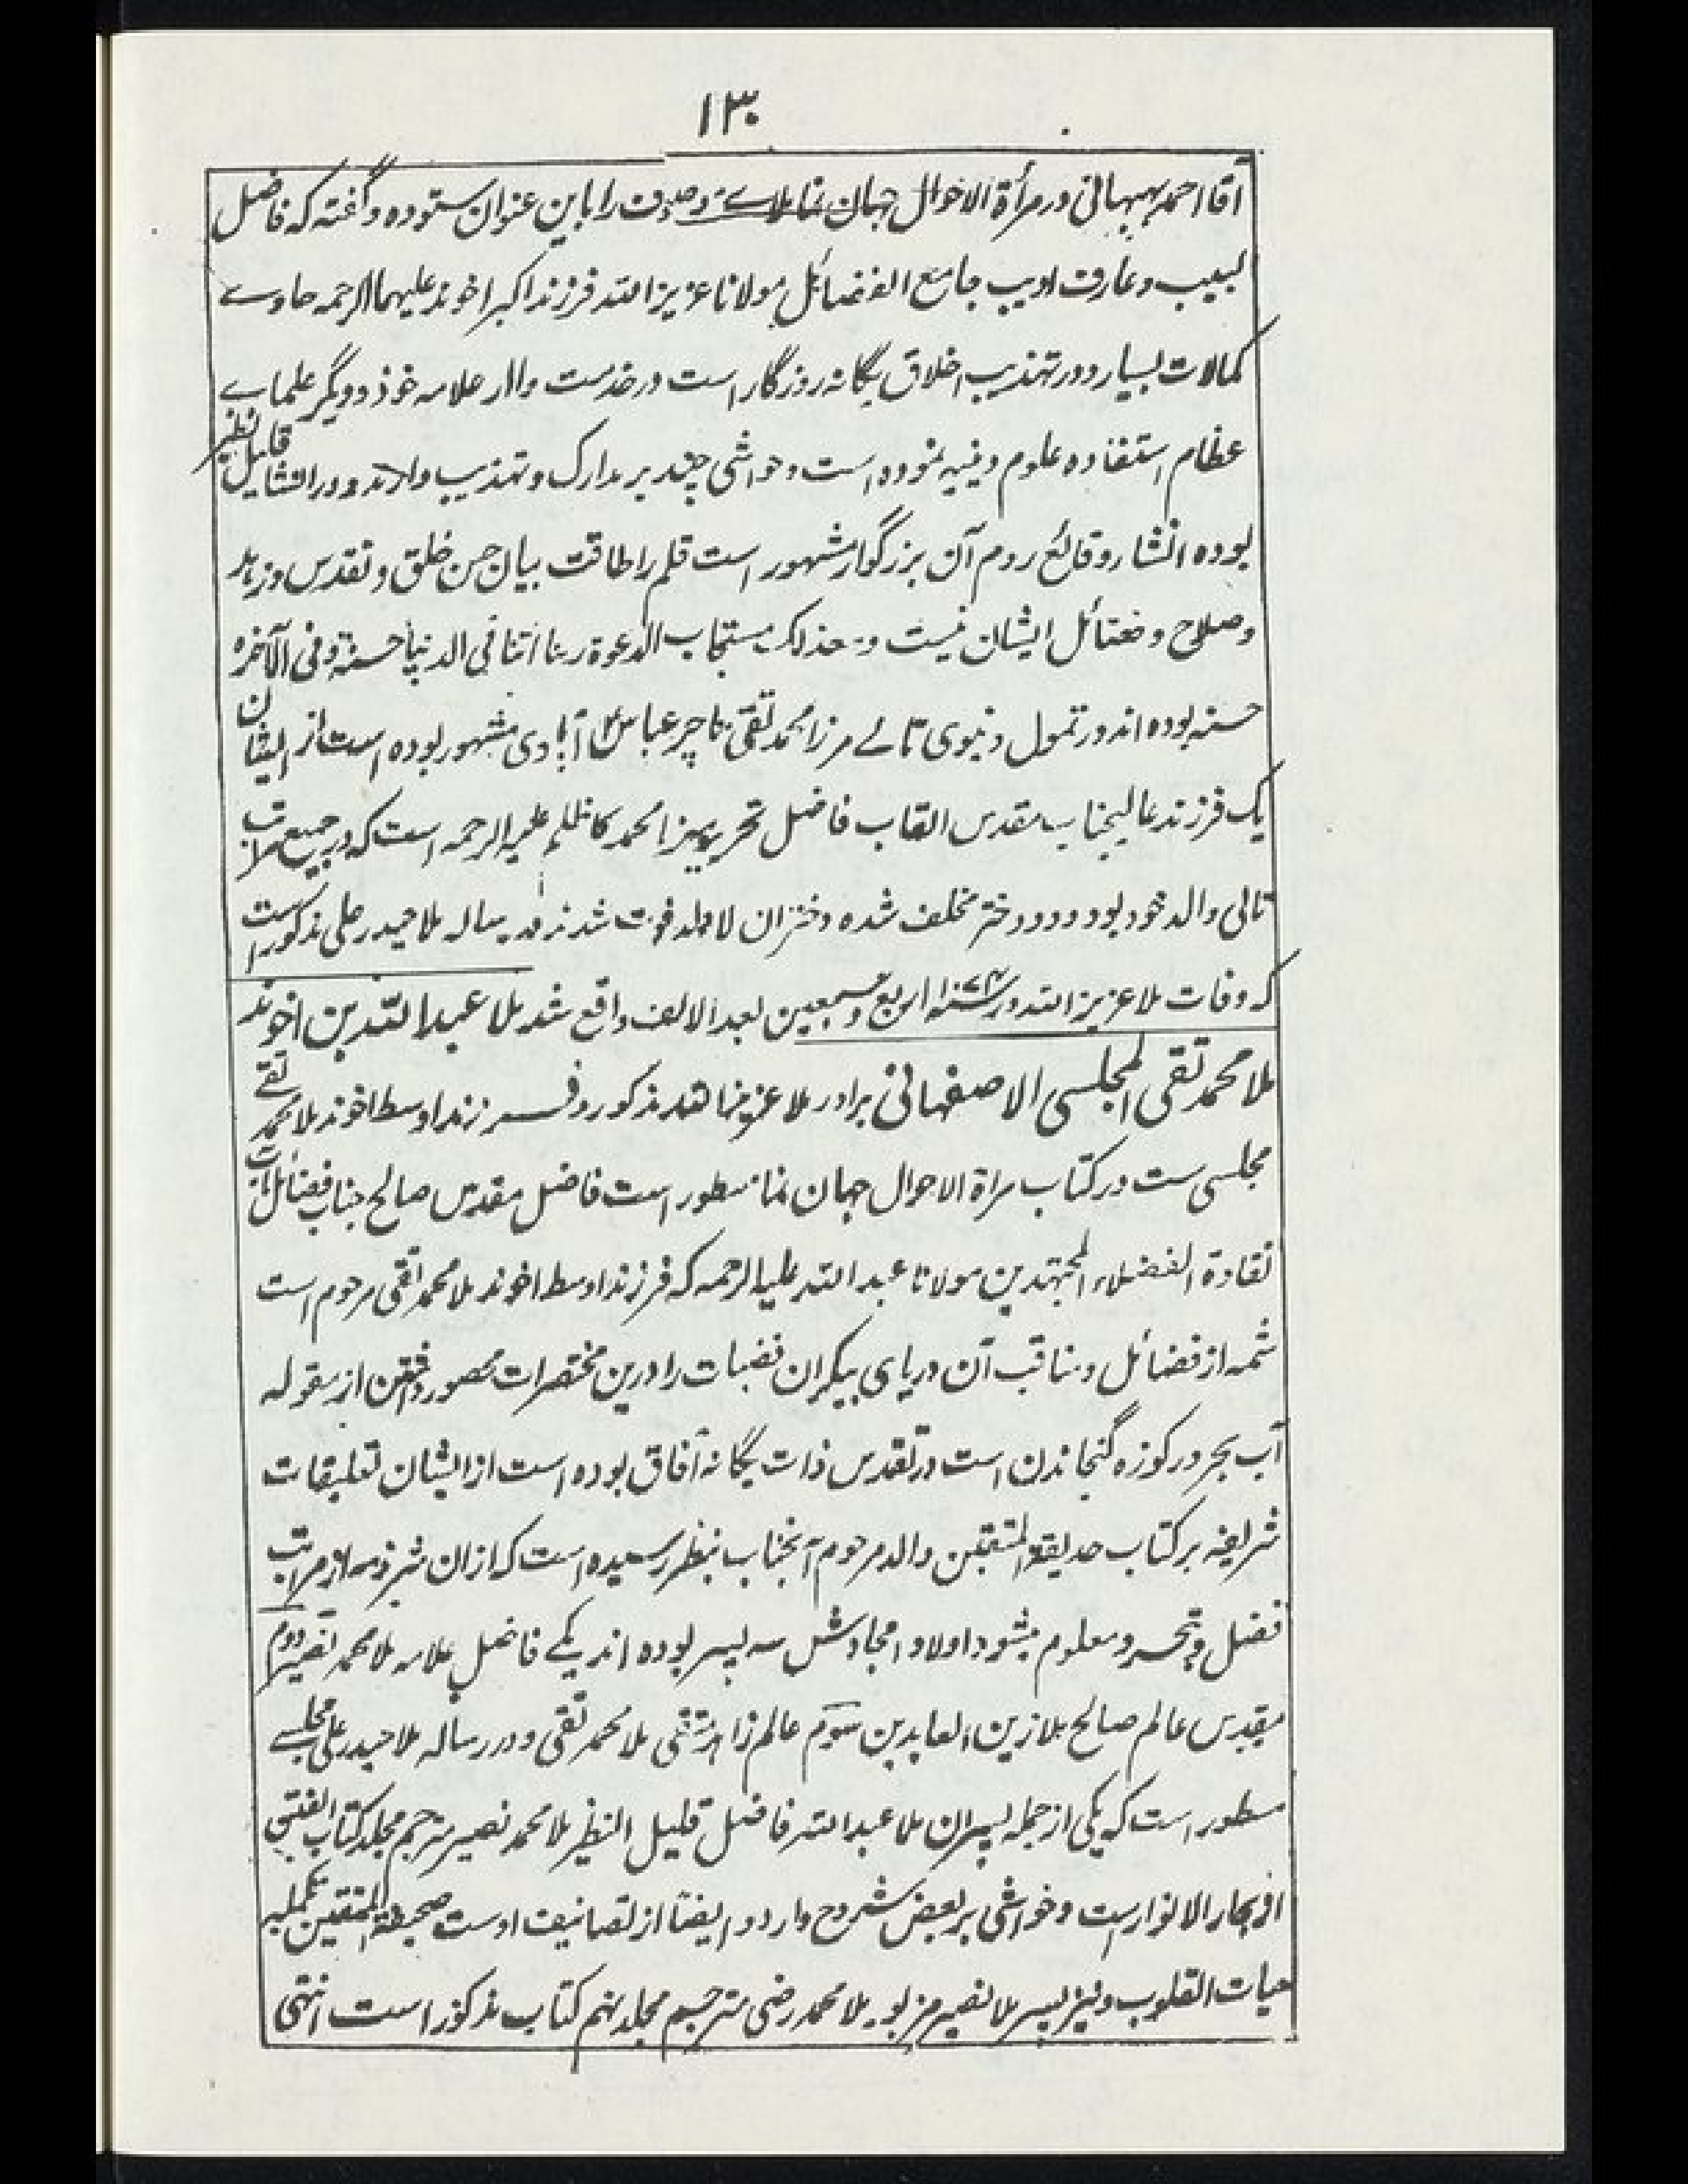 ۱۳۰
آقا احمد بهبهانی در مرأة الاحوال جهان نما ملای موصوف را باین عنوان ستوده و گفته که فاضل
لبیب و عارف ادیب جامع الفضائل مولانا عزیز الله فرزند اکبر اخوند علیهما الرحمه حاوے
کمالات بسیار و در تهذیب اخلاق یگانه روزگار است در خدمت والد علامه خود و دیگر علماے
عظام استفاده علوم دینیه نموده است و حواشی چند بر مدارک و تهذیب دارند و در انشا قلیل نظیر
بوده انشا وقائع روم آن بزرگوار مشهور است قلم را طاقت بیان حسن خلق و تقدس و زهد
و صلاح و فضائل ایشان نیست و معذلک مستجاب الدعوة ربنا آتنا فی الدنیا حسنة و فی الآخرة
حسنه بوده اند و در تمول دنیوی تالے مرزا محمد تقی تاجر عباس آبادی مشهور بوده است از ایشان
یک فرزند عالیجناب مقدس القاب فاضل نحریر میرزا محمد کاظم علیه الرحمه است که در جمیع مراتب
تالی والد خود بود و دو دختر مخلف شده دختران لا ولد فوت شدند در رساله ملا حیدر علی مذکور است
که وفات ملا عزیز الله در ۱۰۷۴ سنه اربع و سبعین بعد الالف واقع شد ملا عبد الله بن اخوند
ملا محمد تقی المجلسی الاصفهانی برادر ملا عزیز الله مذکور و فرزند اوسط اخوند ملا محمد تقے
مجلسی ست در کتاب مراة الاحوال جهان نما مسطور است فاضل مقدس صالح جناب فضائل مآب
نقادة الفضلاء المجتهدین مولانا عبد الله علیه الرحمه که فرزند اوسط اخوند ملا محمد تقی مرحوم است
شمه از فضائل و مناقب آن دریای بیکران فضیات را درین مختصرات محصور از مقوله
آب بحر در کوزه گنجاندن است در تقدس ذات یگانه آفاق بوده است از ایشان تعلیقات
شریفه بر کتاب حدیقة المتقین والد مرحوم آنجناب بنظر رسیده است که ازان شرذمه از مراتب
فضل و تبحر و معلوم میشود اولاد امجادش سه پسر بوده اند یکے فاضل علامه ملا محمد نصیر دوم
مقدس عالم صالح ملا زین العابدین سوم عالم زاهد متقی ملا محمد تقی و در رساله ملا حیدر علی مجلسے
مسطور است که یکی از جمله پسران ملا عبد الله فاضل قلیل النظیر ملا محمد نصیر مترجم مجلد کتاب الفتن
از بحار الانوار ست و حواشی بر بعض شروح دارد و ایضاً از تصانیف اوست صحیفة المتقین تکمله
حیات القلوب و نیز پسر ملا نصیر مزبور ملا محمد رضی مترجم مجلد نهم کتاب مذکور است انتهی